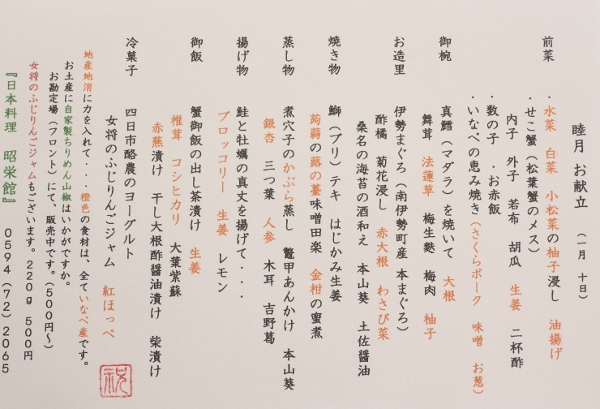 睦月 お献立 (一月 十日)
前菜 ・水菜 白菜 小松菜の柚子浸し 油揚げ
・せこ蟹(松葉蟹のメス)
内子 外子 若布 胡瓜 生姜 二杯酢
・数の子 ・お赤飯
・いなべの恵み焼き(さくらポーク 味噌 お葱)
御椀 真鱈(マダラ)を焼いて 大根
舞茸 法蓮草 梅生麩 梅肉 柚子
お造里 伊勢まぐろ(南伊勢町産 本まぐろ)
酢橘 菊花浸し 赤大根 わさび菜
桑名の海苔の酒和え 本山葵 土佐醤油
焼き物 鰤(ブリ)テキ はじかみ生姜
蒟蒻の蕗の薹味噌田楽 金柑の蜜煮
蒸し物 煮穴子のかぶら蒸し 鼈甲あんかけ 本山葵
銀杏 三つ葉 人参 木耳 吉野葛
揚げ物 鮭と牡蠣の真丈を揚げて・・・
ブロッコリー 生姜 レモン
御飯 蟹御飯の出し茶漬け 生姜
椎茸 コシヒカリ 大葉紫蘇
赤蕪漬け 干し大根酢醤油漬け 柴漬け
冷菓子 四日市酪農のヨーグルト
女将のふじりんごジャム 紅ほっぺ
地産地消に力を入れて・・・橙色の食材は、全ていなべ産です。
お土産に自家製ちりめん山椒はいかがですか。
お勘定場(フロント)にて、販売中です。(500円~)
女将のふじりんごジャムもございます。220g 500円
『日本料理 昭栄館』 0594(72)2065
祝